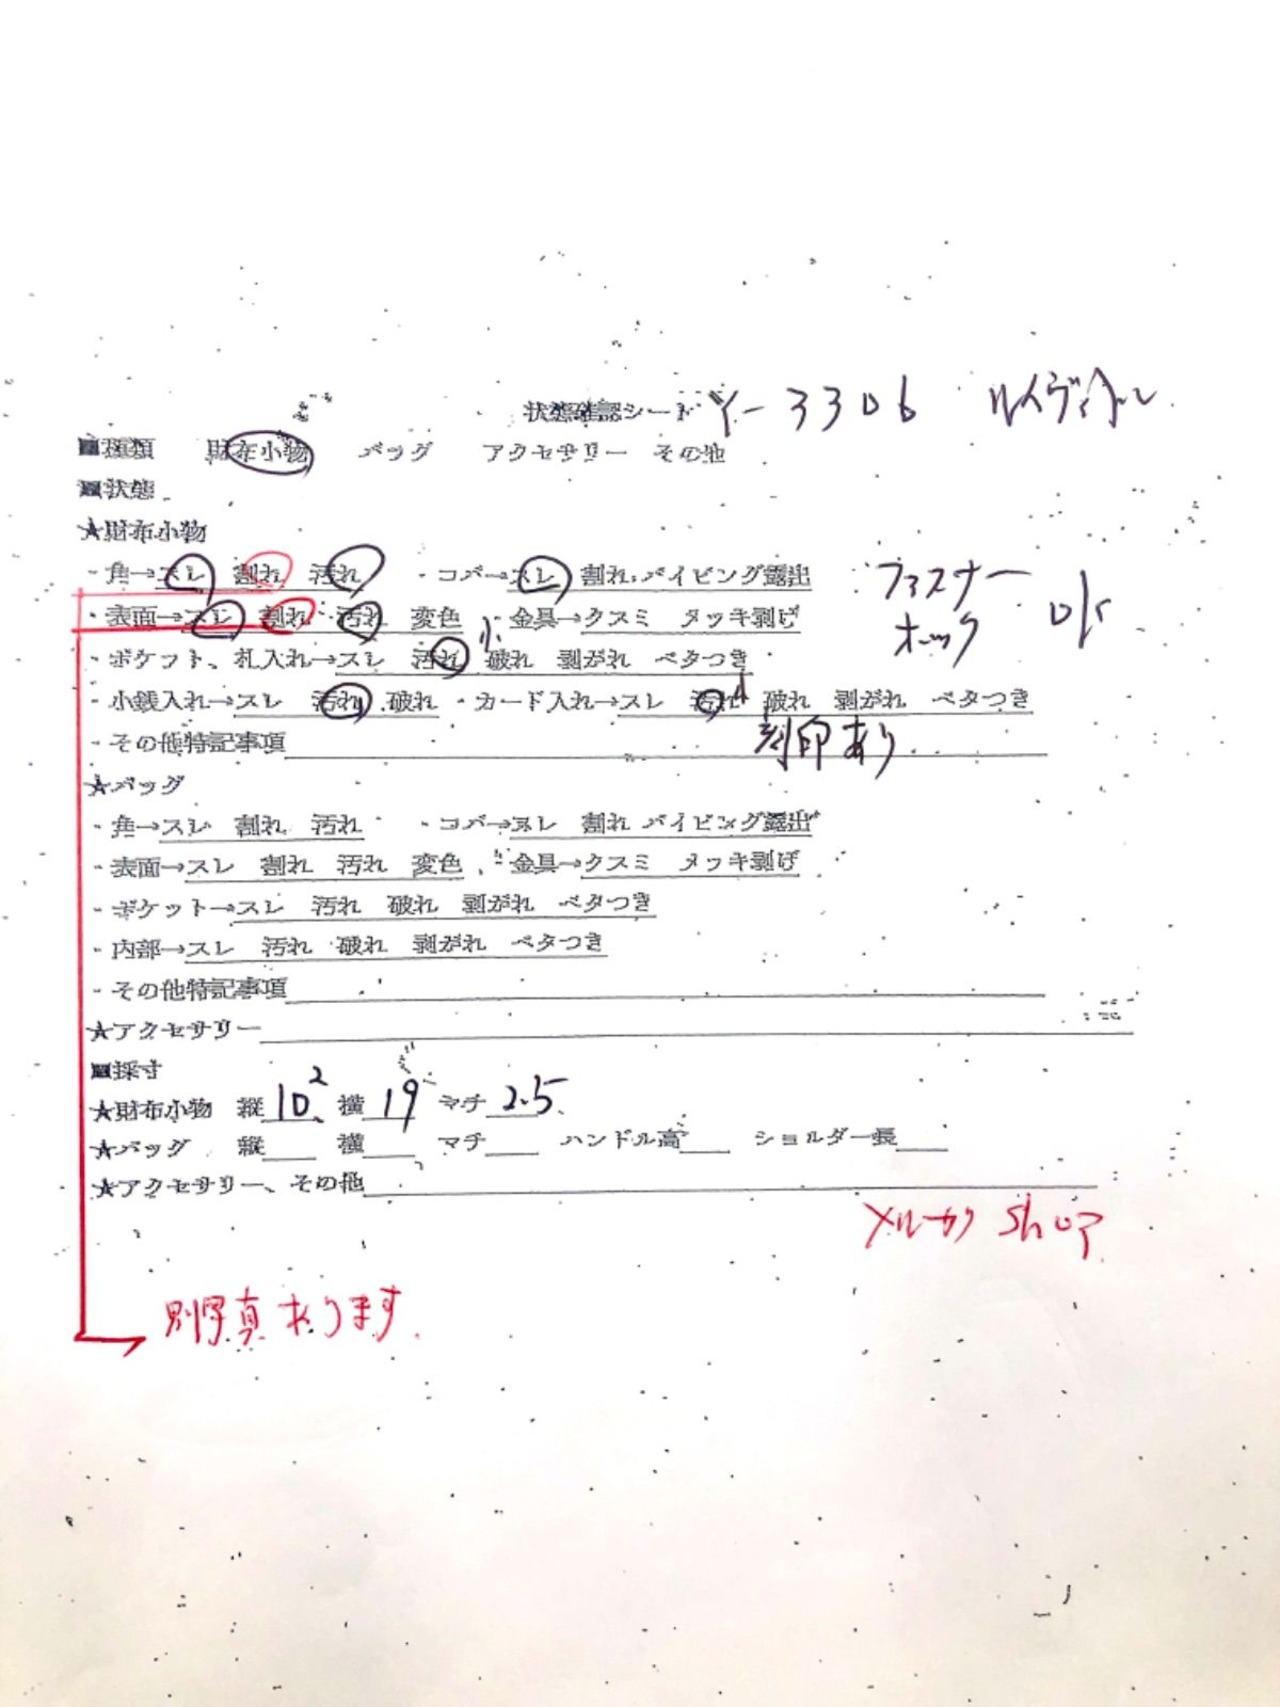 状態確認シート Y-3306 ルイヴィトン
■種類 財布小物 バッグ アクセサリー その他
■状態
★財布小物
・角→スレ 割れ 汚れ ・コバ→スレ 割れ パイピング露出 ファスナー
・表面→スレ 割れ 汚れ 変色 ・金具→クスミ メッキ剥げ ホック
・ポケット、札入れ→スレ 汚れ 小 破れ 剥がれ ベタつき
・小銭入れ→スレ 汚れ 破れ ・カード入れ→スレ 汚れ 小 破れ 剥がれ ベタつき
・その他特記事項 刻印あり
★バッグ
・角→スレ 割れ 汚れ ・コバ→スレ 割れ パイピング露出
・表面→スレ 割れ 汚れ 変色 ・金具→クスミ メッキ剥げ
・ポケット→スレ 汚れ 破れ 剥がれ ベタつき
・内部→スレ 汚れ 破れ 剥がれ ベタつき
・その他特記事項
★アクセサリー
■採寸
★財布小物 縦 10² 横 19 マチ 2.5
★バッグ 縦 横 マチ ハンドル高 ショルダー長
★アクセサリー、その他
メルカリ Shop
別写真あります